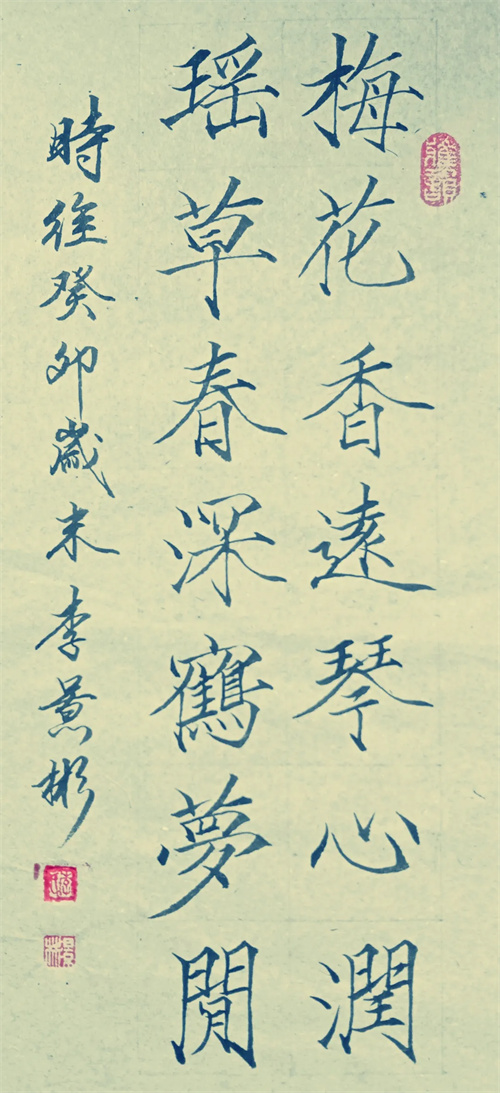 梅花香遠琴心潤
瑶草春深鶴夢閒
時在癸卯歲末李景彬